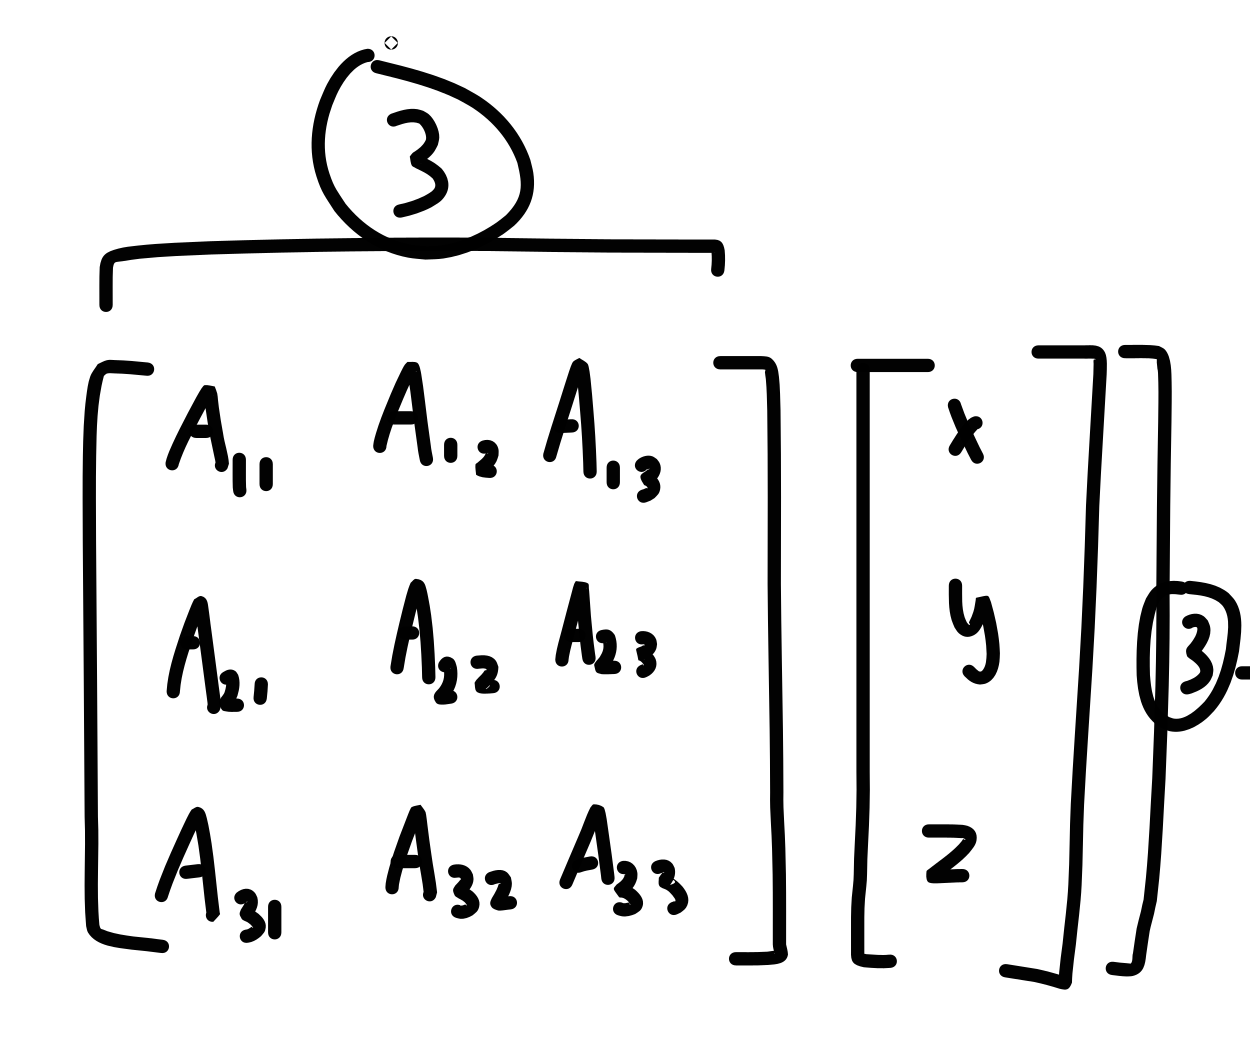 3
A11 A12 A13 x
A21 A22 A23 y 3
A31 A32 A33 z